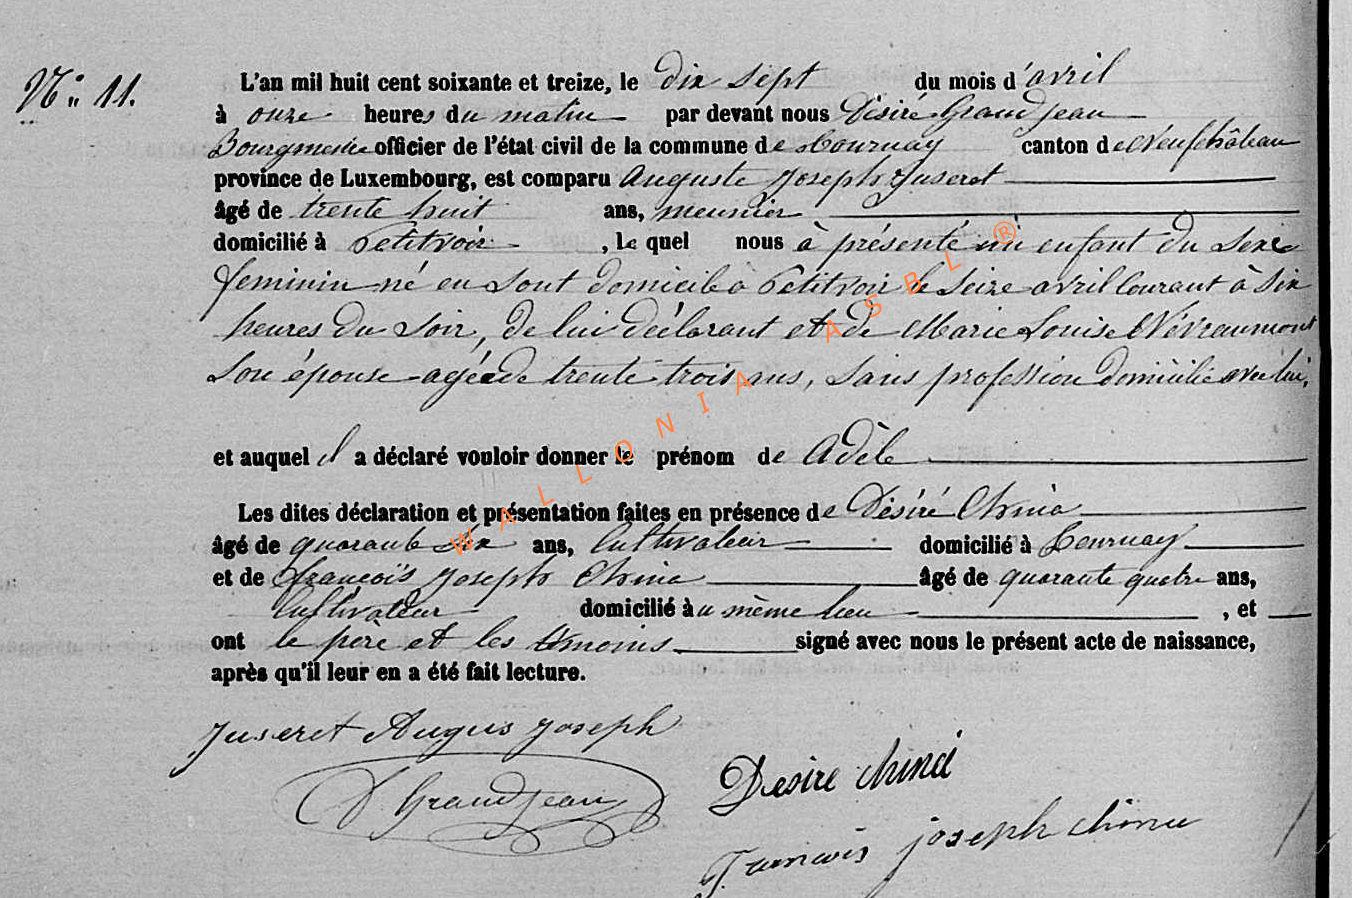 N° 11.
L'an mil huit cent soixante et treize, le dix sept du mois d'avril
à onze heures du matin par devant nous Désiré Grandjean
Bourgmestre officier de l'état civil de la commune de Tournay canton de Neufchâteau
province de Luxembourg, est comparu Auguste Joseph Juseret
âgé de trente huit ans, meunier
domicilié à Petitvoir, le quel nous à présenté un enfant du sexe
feminin né en sont domicile à Petitvoir le seize avril Courant à six
heures du soir, de lui déclarant et de Marie Louise Névraumont
son épouse agée de trente trois ans, sans profession domicilié avec lui,
et auquel il a déclaré vouloir donner le prénom de Adèle
Les dites déclaration et présentation faites en présence de Désiré Chiné
âgé de quarante six ans, Cultivateur domicilié à Tournay
et de françois Joseph Chiné âgé de quarante quatre ans,
Cultivateur domicilié au même lieu, et
ont le pere et les témoins signé avec nous le présent acte de naissance,
après qu'il leur en a été fait lecture.
Juseret Augus Joseph
D Grandjean
Desire chiné
Francois joseph chine
WALLONIA ASBL ®